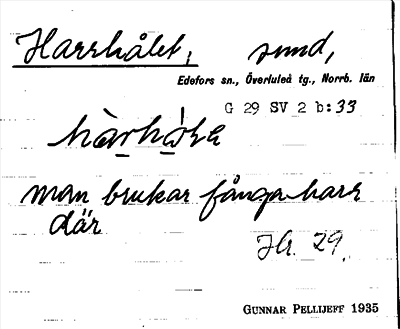 Harrhålet, sund,
Edefors sn., Överluleå tg., Norrb. län
G 29 SV 2 b: 33
man brukar fånga harr
där
Hr. 29.
GUNNAR PELLIJEFF 1935